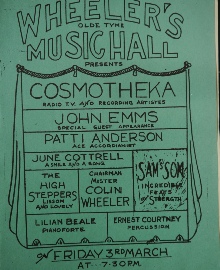 WHEELER'S
OLDE TYME
MUSIC HALL
PRESENTS
COSMOTHEKA
RADIO T.V. AND RECORDING ARTISTES
JOHN EMMS
SPECIAL GUEST APPEARANCE
PATTI ANDERSON
ACE ACCORDIANIST
JUNE COTTRELL
A SMILE AND A SONG
THE
HIGH
STEPPERS
LISSOM
AND LOVELY
CHAIRMAN
MISTER
COLIN
WHEELER
SAMSON
INCREDIBLE
FEATS
OF
STRENGTH
LILIAN BEALE
PIANOFORTE
ERNEST COURTNEY
PERCUSSION
ON FRIDAY 3RD MARCH
AT 7-30PM.